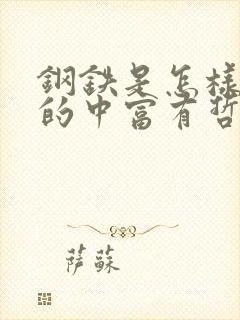 鋼鉄是怎樣
的中富有哲
萨蘇